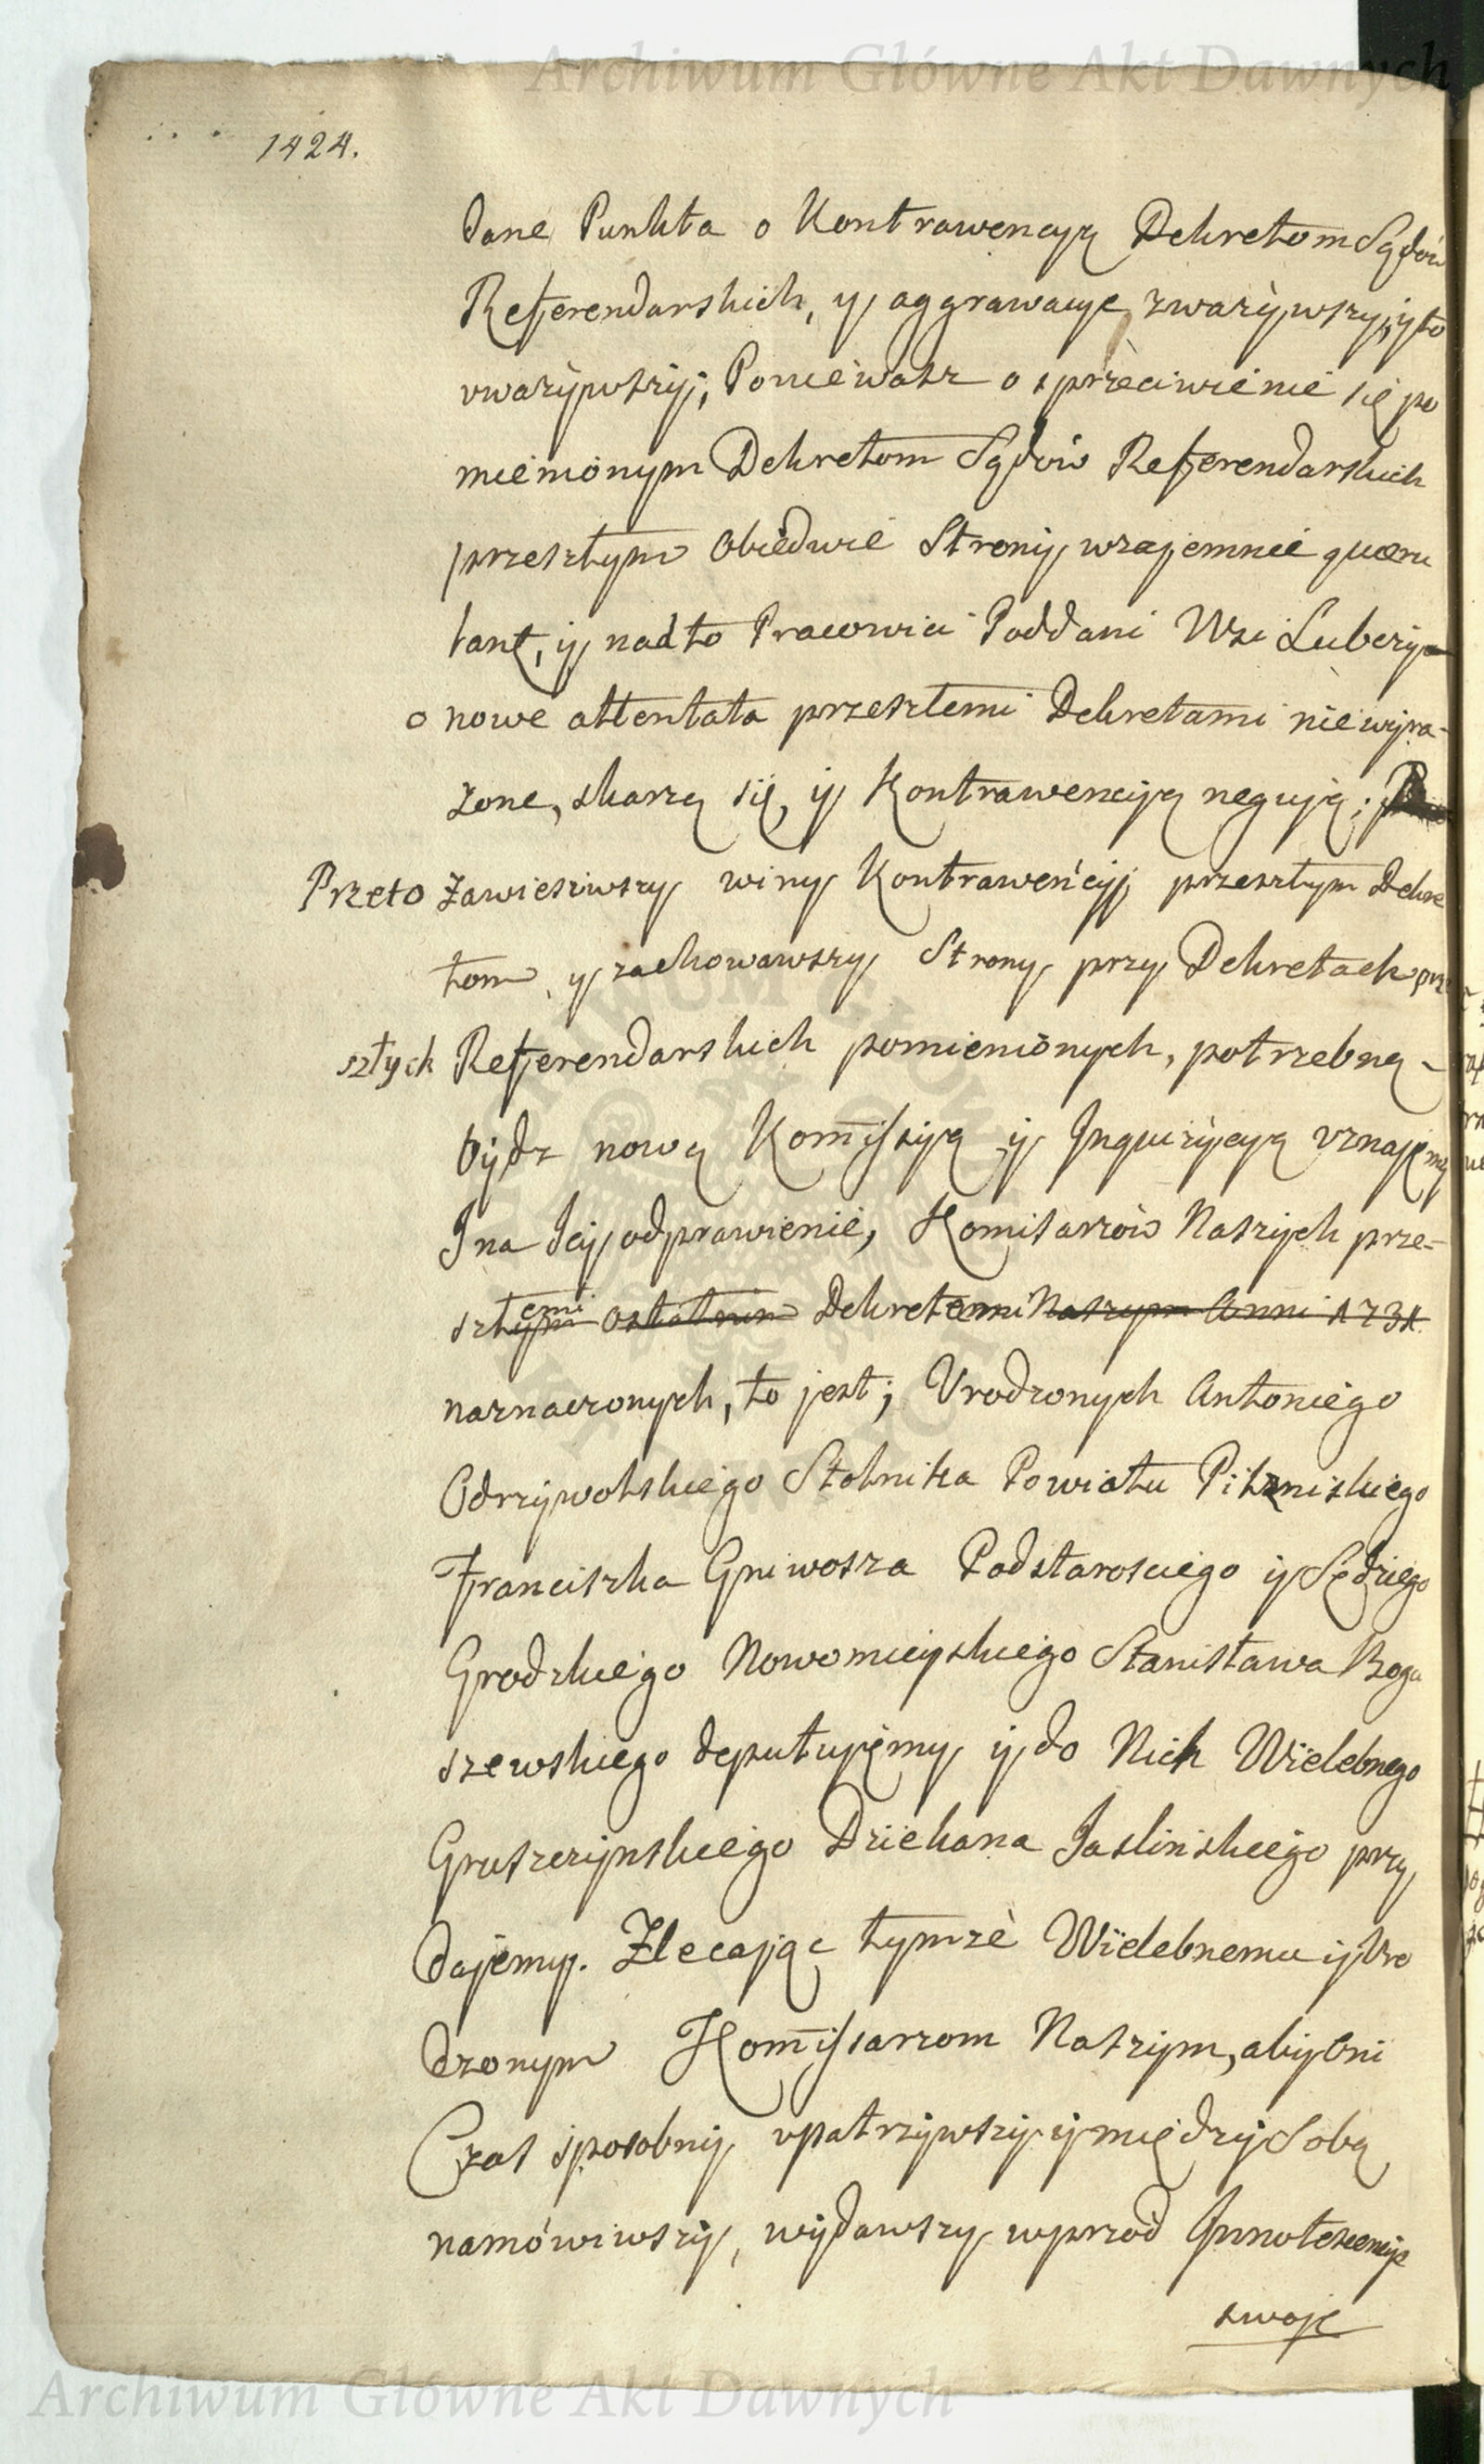 Archiwum Główne Akt Dawnych
1424.
dane Punkta o Kontrawencyą Dekretom Sądów
Referendarskich, y aggrawacye zwarzywszy, y to
uwarzywszy; Poniewasz o sprzeciwienie się po
mienionym Dekretom Sądów Referendarskich
przeszłym Obiedwie Strony wzajemnie quæru
lantę, y nadto Pracowici Poddani Wsi Lubczy
o nowe attentata przeszłemi Dekretami niewyra-
zone, skarzą się, y Kontrawencyą negują;
Przeto Zawiesiwszy winy Kontrawencyj przeszłym Dekre
tom, y zachowawszy Strony przy Dekretach prze
szłych Referendarskich pomienionych, potrzebną
bydz nową Kommissyą y Inquizycyą uznajemy
I na Jey odprawienie, Komisarzow Naszych prze-
szłymi emi ostatnim Dekretami Naszym Anni 1731
naznaczonych, to jest; Urodzonych Antoniego
Odrzywolskiego Stolnika Powiatu Pilzniskiego
Franciszka Gniwosza Podstarosciego y Sędziego
Grodzkiego Nowomieyskiego Stanisława Bogu
szewskiego deputujemy y do Nich Wielebnego
Gruszczynskiego Dziekana Jaslinskiego przy
dajemy. Zlecając tymze Wielebnemu y Uro
dzonym Kommissarzom Naszym, aby Oni
Czas sposobny upatrzywszy y między Sobą
namówiwszy, wydawszy wprzod Innotescencye
swoje
Archiwum Główne Akt Dawnych